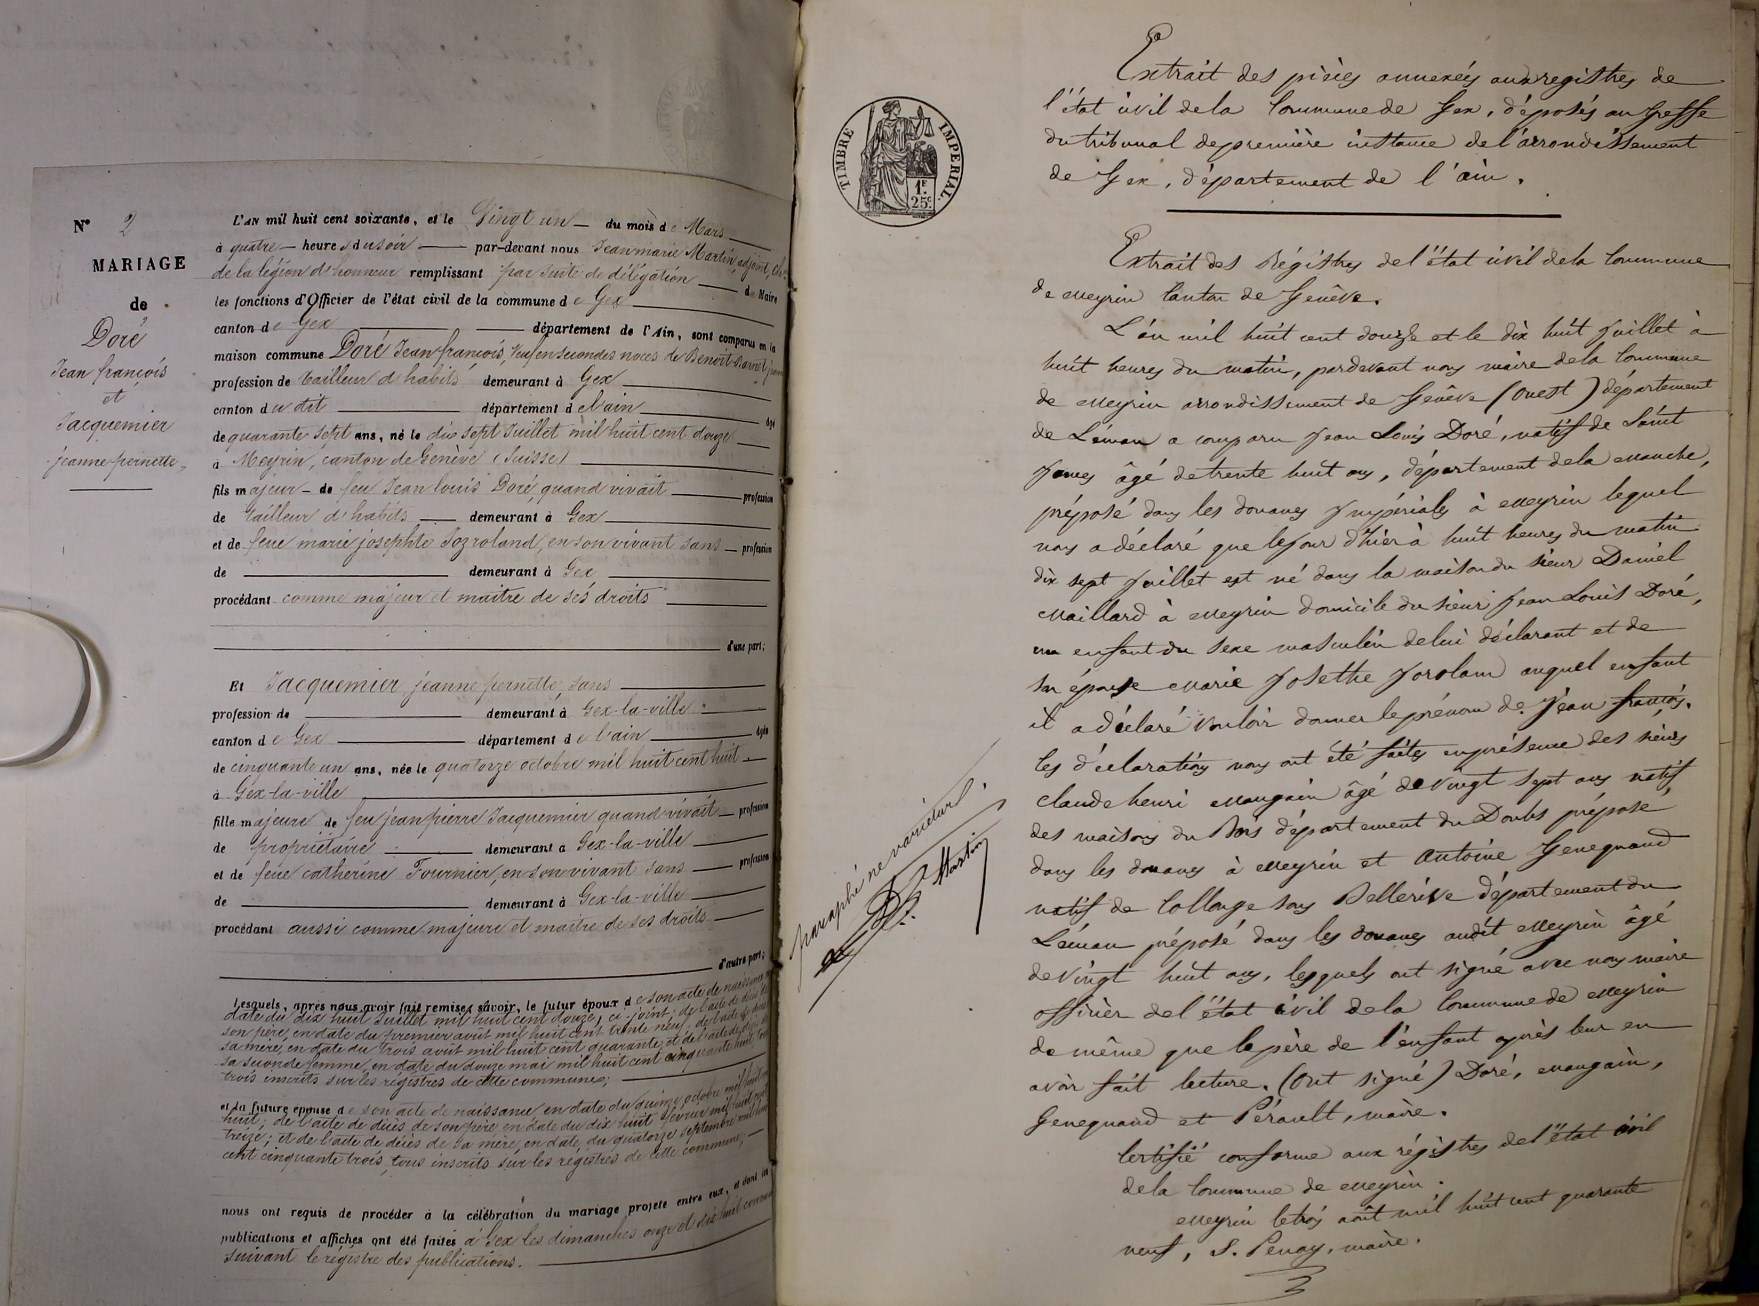 N° 2
MARIAGE
de
Doré
Jean françois
et
Jacquemier
jeanne pernette
L'AN mil huit cent soixante, et le Vingt un du mois de Mars
à quatre heures du soir par-devant nous Jean marie Martin, adjoint, Ch.
de la légion d'honneur remplissant par suite de délégation de Maire
les fonctions d'Officier de l'état civil de la commune de Gex
canton de Gex département de l'Ain, sont comparus en la
maison commune Doré Jean françois, Veuf en secondes noces de Benoit
profession de tailleur d'habits demeurant à Gex
canton du dit département de l'ain âgé
de quarante sept ans, né le dix sept Juillet mil huit cent douze
à Meyrin, canton de Genève (Suisse)
fils majeur de feu Jean louis Doré, quand vivait profession
de tailleur d'habits demeurant à Gex
et de feue marie josephte Jozroland, en son vivant sans profession
de demeurant à Gex
procédant comme majeur et maître de ses droits
d'une part;
Et Jacquemier jeanne pernette, sans
profession de demeurant à Gex-la-ville
canton de Gex département de l'ain âgée
de cinquante un ans, née le quatorze octobre mil huit cent huit
à Gex-la-ville
fille majeure de feu jean pierre Jacquemier quand vivait profession
de propriétaire demeurant à Gex-la-ville
et de feue catherine Fournier, en son vivant sans profession
de demeurant à Gex-la-ville
procédant aussi comme majeure et maître de ses droits
d'autre part;
Lesquels, après nous avoir fait remise, savoir, le futur époux de son acte de naissance en
date du dix huit Juillet mil huit cent douze, ci-joint; de l'acte de décès de
son père, en date du premier août mil huit cent trente neuf; de l'acte de décès de
sa mère, en date du trois août mil huit cent quarante; et de l'acte de décès de
sa seconde femme, en date du douze mai mil huit cent cinquante huit, tous
trois inscrits sur les régistres de cette commune;
et la future épouse de son acte de naissance en date du quinze octobre mil huit cent
huit; de l'acte de décès de son père en date du dix huit février mil huit cent
treize; et de l'acte de décès de sa mère, en date du quatorze septembre mil huit
cent cinquante trois, tous inscrits sur les régistres de cette commune;
nous ont requis de procéder à la célébration du mariage projeté entre eux, et dont les
publications et affiches ont été faites à Gex les dimanches onze et dix huit courant
suivant le régistre des publications.
TIMBRE IMPERIAL
1F.
25c.
Extrait des pièces annexées aux registres de
l'état civil de la Commune de Gex, déposés au Greffe
du tribunal de première instance de l'arrondissement
de Gex, département de l'ain.
Extrait des Régistres de l'état civil de la Commune
de Meyrin Canton de Genève.
L'an mil huit cent douze et le dix huit Juillet à
huit heures du matin, pardevant nous maire de la Commune
de Meyrin arrondissement de Genève (ouest) département
de Léman a comparu Jean Louis Doré, natif de Saint
James âgé de trente huit ans, département de la Manche,
préposé dans les douanes Impériales à Meyrin lequel
nous a déclaré que le jour d'hier à huit heures du matin
dix sept Juillet est né dans la maison du sieur Daniel
Maillard à Meyrin domicile du sieur Jean Louis Doré,
un enfant du sexe masculin de lui déclarant et de
son épouse Marie Josethe Jorolam auquel enfant
il a déclaré vouloir donner le prénom de Jean françois.
les déclarations nous ont été faites en présence des sieurs
Claude henri Maugain âgé de vingt sept ans natif
des maisons du Bois département du Doubs préposé
dans les douanes à Meyrin et Antoine Genequand
natif de Collonge sous Bellerive département du
Léman préposé dans les douanes audit Meyrin âgé
de vingt huit ans, lesquels ont signé avec nous maire
officier de l'état civil de la Commune de Meyrin
de même que le père de l'enfant après leur en
avoir fait lecture. (Ont signé) Doré, Maugain,
Genequand et Pérault, maire.
Certifié conforme aux régistres de l'état civil
de la Commune de Meyrin.
Meyrin le trois août mil huit cent quarante
neuf, S. Penay, maire.
paraphé ne varietur
Martin